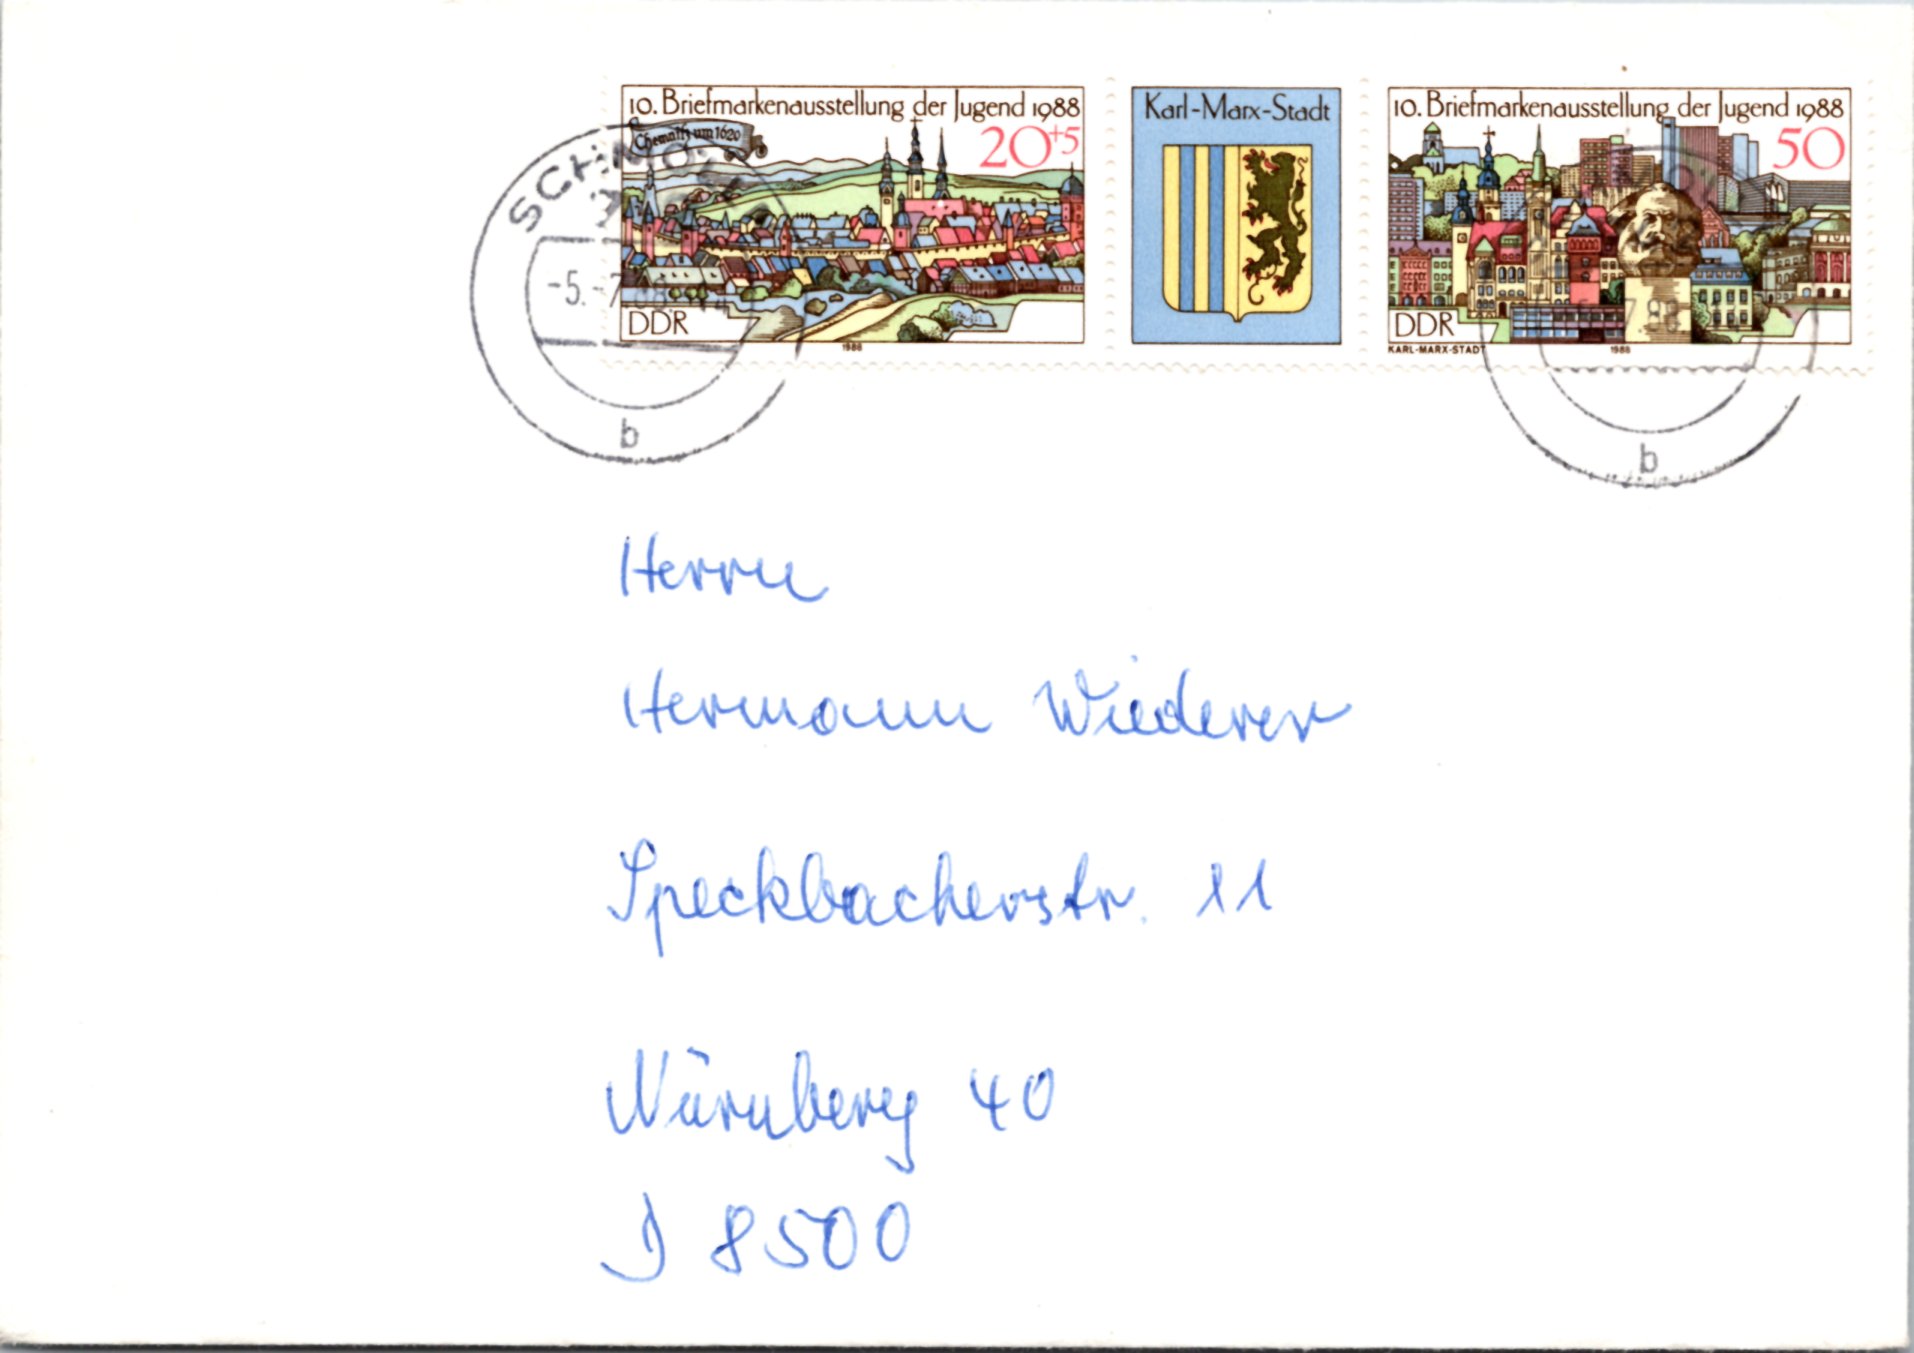 10. Briefmarkenausstellung der Jugend 1988
Chemnitz um 1620
20+5
DDR
1988
Karl-Marx-Stadt
10. Briefmarkenausstellung der Jugend 1988
50
DDR
KARL-MARX-STADT
1988
-5.-7.
b
7.88
b
Herrn
Hermann Wiederer
Speckbacherstr. 11
Nürnberg 40
D 8500